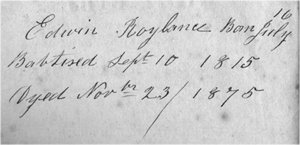 Edwin Roylance Born July 16
Baptised Sept 10 1815
Dyed Novbr 23/1875